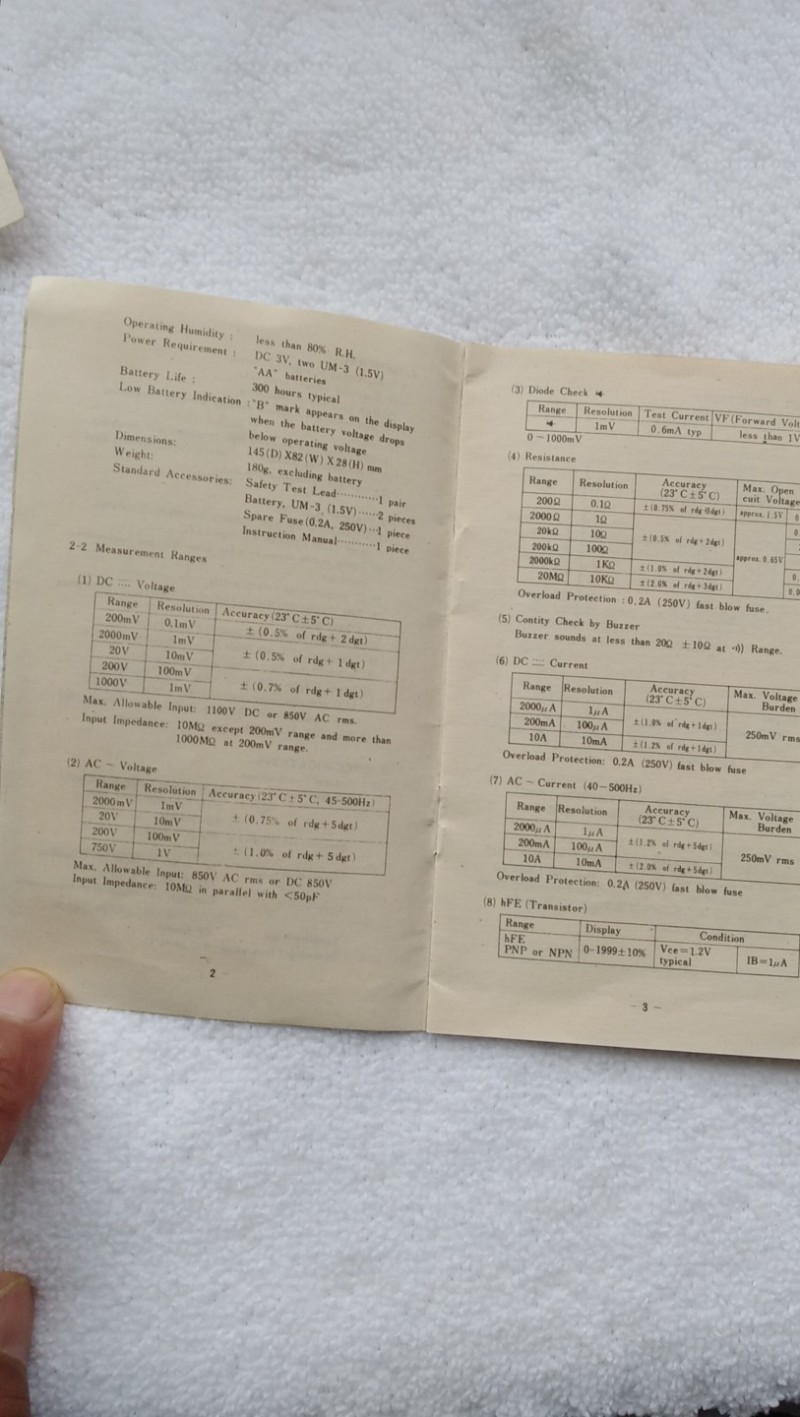 Operating Humidity : less than 80% R.H.
Power Requirement : DC 3V, two UM-3 (1.5V)
"AA" batteries
Battery Life : 300 hours typical
Low Battery Indication : "B" mark appears on the display
when the battery voltage drops
below operating voltage
Dimensions: 145(D)X82(W)X28(H) mm
Weight: 180g, excluding battery
Standard Accessories: Safety Test Lead···········1 pair
Battery, UM-3 (1.5V)······2 pieces
Spare Fuse(0.2A, 250V)···1 piece
Instruction Manual···········1 piece
2-2 Measurement Ranges
(1) DC ⎓ Voltage
Range Resolution Accuracy(23°C±5°C)
200mV 0.1mV ±(0.5% of rdg + 2 dgt)
2000mV 1mV
20V 10mV ±(0.5% of rdg + 1 dgt)
200V 100mV
1000V 1mV ±(0.7% of rdg + 1 dgt)
Max. Allowable Input: 1100V DC or 850V AC rms.
Input Impedance: 10MΩ except 200mV range and more than
1000MΩ at 200mV range.
(2) AC ~ Voltage
Range Resolution Accuracy(23°C±5°C, 45-500Hz)
2000mV 1mV
20V 10mV ±(0.75% of rdg+5dgt)
200V 100mV
750V 1V ±(1.0% of rdg+ 5 dgt)
Max. Allowable Input: 850V AC rms or DC 850V
Input Impedance: 10MΩ in parallel with <50pF
2
(3) Diode Check
Range Resolution Test Current VF(Forward Volt
1mV 0.6mA typ less than 1V
0~1000mV
(4) Resistance
Range Resolution Accuracy (23°C±5°C) Max. Open
cuit Voltage
200Ω 0.1Ω approx. 1.5V
2000Ω 1Ω
20kΩ 10Ω ±(0.5% of rdg+2dgt)
200kΩ 100Ω approx. 0.65V
2000kΩ 1KΩ ±(1.0% of rdg+2dgt)
20MΩ 10KΩ ±(2.0% of rdg+3dgt)
Overload Protection : 0.2A (250V) fast blow fuse.
(5) Contity Check by Buzzer
Buzzer sounds at less than 20Ω ±10Ω at ·)) Range.
(6) DC ⎓ Current
Range Resolution Accuracy (23°C±5°C) Max. Voltage
Burden
2000μA 1μA
200mA 100μA ±(1.0% of rdg+1dgt) 250mV rms
10A 10mA ±(1.2% of rdg+1dgt)
Overload Protection: 0.2A (250V) fast blow fuse
(7) AC ~ Current (40-500Hz)
Range Resolution Accuracy (23°C±5°C) Max. Voltage
Burden
2000μA 1μA
200mA 100μA ±(1.2% of rdg+5dgt) 250mV rms
10A 10mA ±(2.0% of rdg+5dgt)
Overload Protection: 0.2A (250V) fast blow fuse
(8) hFE (Transistor)
Range Display Condition
hFE
PNP or NPN 0-1999±10% Vce=1.2V
typical IB=1μA
- 3 -